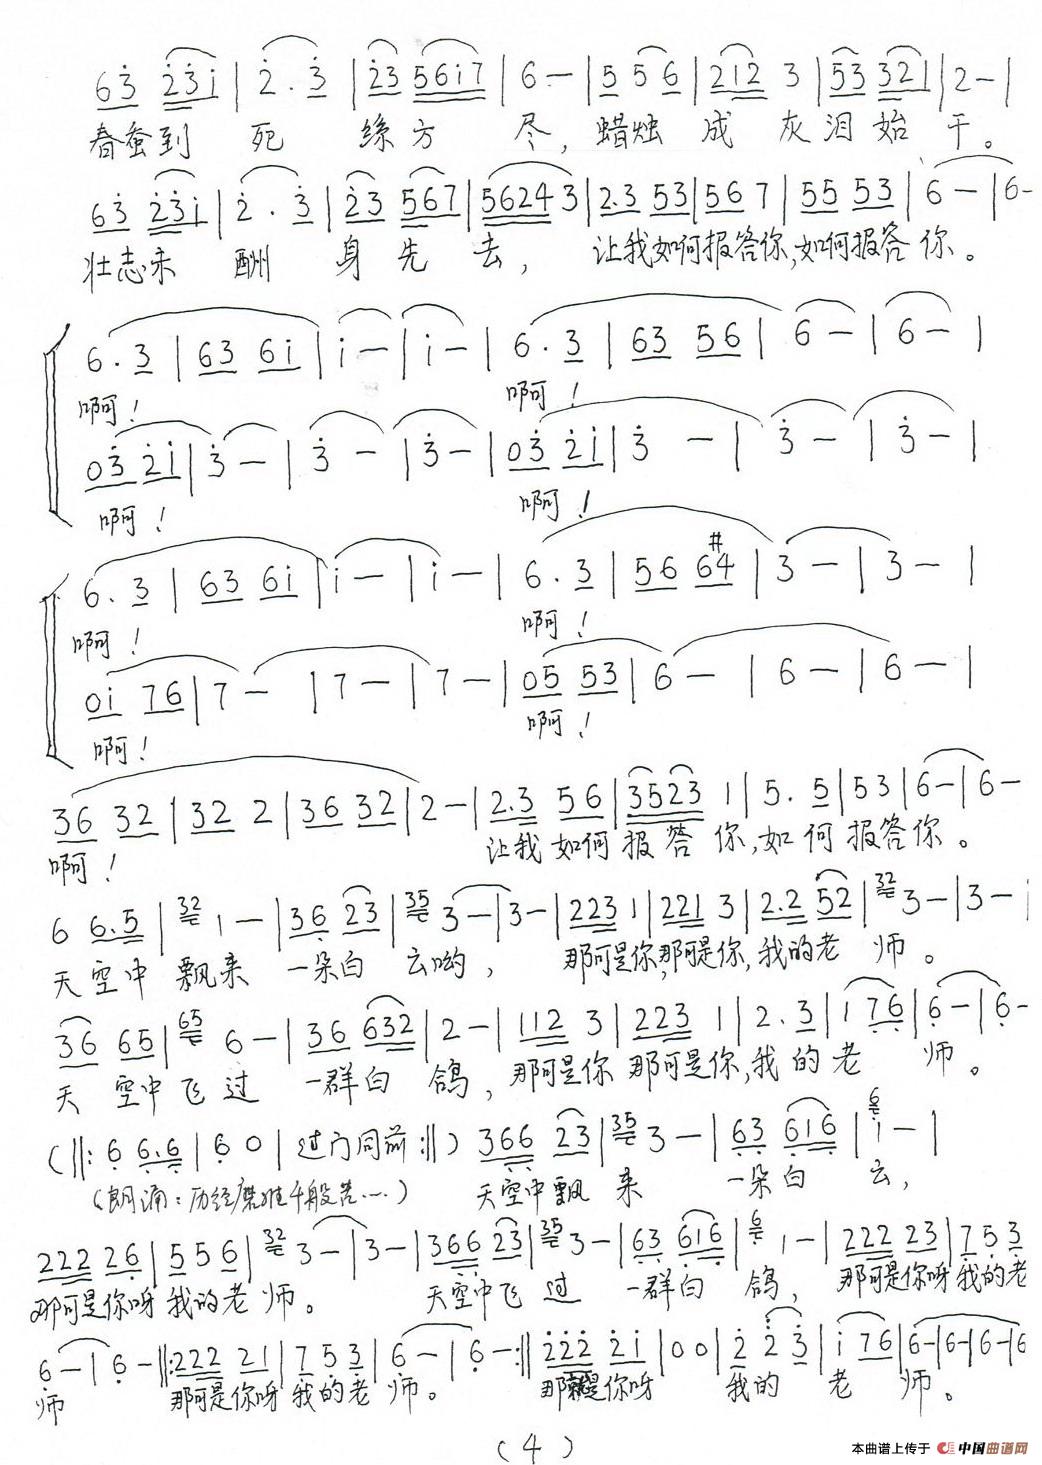 63 231 | 2 . 3 | 23 5617 | 6 — | 5 5 6 | 212 3 | 53 321 | 2 — |
春蚕到 死 丝方 尽，蜡烛 成 灰泪始 干。
63 231 | 2 . 3 | 23 567 | 5624 3 | 2.3 53 | 56 7 | 55 53 | 6 — | 6 —
壮志未 酬 身 先 去， 让我如何报答你，如何报答 你。
6 . 3 | 63 6i | i — | i — | 6 . 3 | 63 56 | 6 — | 6 — |
啊！ 啊！
03 2i | 3 — | 3 — | 3 — | 03 2i | 3 — | 3 — | 3 — |
啊！ 啊！
6 . 3 | 63 6i | i — | i — | 6 . 3 | 56 6#4 | 3 — | 3 — |
啊！ 啊！
0i 76 | 7 — | 7 — | 7 — | 05 53 | 6 — | 6 — | 6 — |
啊！ 啊！
36 32 | 32 2 | 36 32 | 2 — | 2.3 56 | 3523 1 | 5 . 5 | 53 | 6 — | 6 —
啊！ 让我 如何 报 答 你，如 何 报答你。
6 6.5 | 32 1 — | 36 23 | 35 3 — | 3 — | 223 1 | 221 3 | 2.2 52 | 32 3 — | 3 — |
天 空中 飘来 一朵白 云哟， 那可是你，那可是你，我的老 师。
36 65 | 65 6 — | 36 632 | 2 — | 112 3 | 223 1 | 2 . 3 | 1 76 | 6 — | 6 —
天 空中飞过 一群白 鸽，那可是你 那可是你，我 的 老 师。
(‖: 6 6.6 | 6 0 | 过门同前 :‖) 366 23 | 35 3 — | 63 616 | 6 i — |
（朗诵：历经磨难千般苦……） 天空中飘 来 一朵白 云，
222 26 | 5 5 6 | 32 3 — | 3 — | 366 23 | 35 3 — | 63 616 | 6 1 — | 222 23 | 7 5 3
那可是你呀 我的老 师。 天空中飞 过 一群白 鸽， 那可是你呀 我的老
6 — | 6 — ‖: 222 21 | 7 5 3 | 6 — | 6 — :‖ 222 2i | 0 0 | 2 2 3 | i 76 | 6 — | 6 — | 6 — | 6
师 那可是你呀 我的老 师。 那 是你呀 我的 老 师。
(4)
本曲谱上传于 中国曲谱网